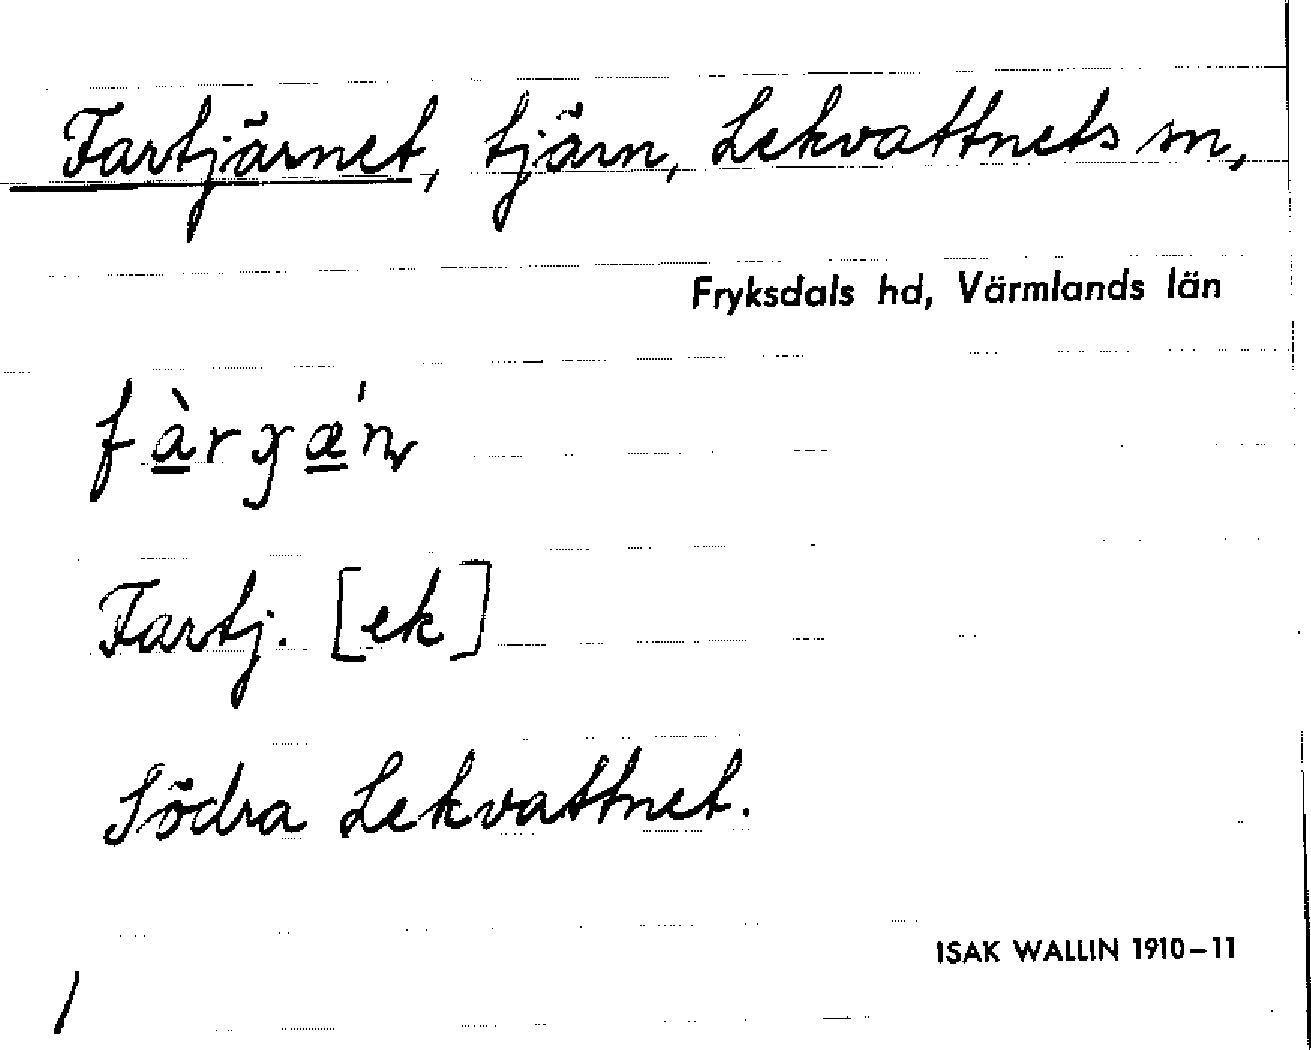 Fartjärnet, tjärn, Lekvattnets sn,
Fryksdals hd, Värmlands län
Fartj. [ek]
Södra Lekvattnet.
ISAK WALLIN 1910–11
/